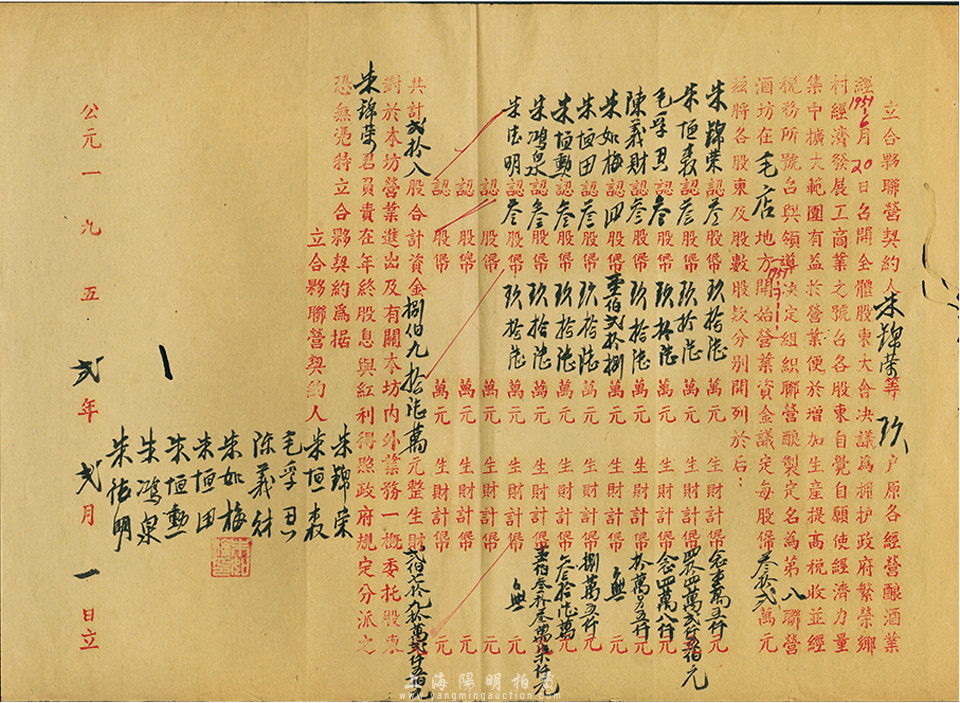 立合夥聯營契約人朱錦荣等玖户原各經營釀酒業
經1951/6月20日召開全體股東大會决議爲拥护政府繁荣鄉
村經濟發展工商業之號召各股東自覺自願使經濟力量
集中擴大範圍有益於營業便於增加生產提高税收並經
税務所號召與領導决定組織聯營釀製定名為第八聯營
酒坊在毛店地方1951.12.1開始營業資金議定每股偹叁拾弍萬元
兹將各股東及股數股欵分别開列於后：
朱錦荣認叁股偹玖拾陆萬元生財計偹念壹萬五仟元
朱垣森認叁股偹玖拾陆萬元生財計偹四萬弍仟五佰元
毛孚丑認叁股偹玖拾陆萬元生財計偹念四萬八仟元
陳義財認叁股偹玖拾陆萬元生財計偹拾萬另五仟元
朱如梅認四股偹壹佰弍拾捌萬元生財計偹無元
朱垣田認叁股偹玖拾陆萬元生財計偹捌萬五仟元
朱垣勳認叁股偹玖拾陆萬元生財計偹叁拾陆萬元
朱鴻泉認叁股偹玖拾陆萬元生財計偹壹佰叁拾叁萬柒仟元
朱德明認叁股偹玖拾陆萬元生財計偹無元
認股偹萬元生財計偹元
認股偹萬元生財計偹元
認股偹萬元生財計偹元
共計弍拾八股合計資金捌佰九拾陆萬元整生財弍佰九拾萬弍仟五佰元
對於本坊營業進出及有關本坊内外業務一概委托股東
朱錦荣君負責在年終股息與紅利得照政府規定分派之
恐無憑特立合夥契約爲据
立合夥聯營契約人
朱錦荣
朱垣森
毛孚丑
陳義財
朱如梅
朱垣田
朱垣勳
朱鴻泉
朱德明
公元一九五弍年弍月一日立
上海陽明拍賣
www.yangmingauction.com